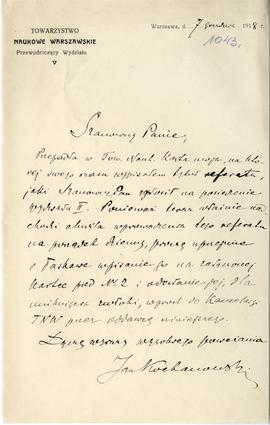 TOWARZYSTWO
NAUKOWE WARSZAWSKIE
Przewodniczący Wydziału
Warszawa, d. 7 grudnia 1918 r.
1043.
Szanowny Panie,
Przepadła w Tow. Nauk. Karta moja, na któ-
rej swego czasu wypisałem tytuł referatu,
jaki Szanowny Pan zgłosił na posiedzenie
Wydziału II. Ponieważ teraz właśnie nad-
chodzi chwila wprowadzenia tego referatu
na porządek dzienny, proszę uprzejmie
o łaskawe wpisanie go na załączonej
kartce pod № 2 i odesłanie jej, dla
uniknięcia zwłoki, wprost do Kancelarji
TNW przez oddawcę niniejszego.
Łączę wyrazy wysokiego poważania
Jan Kochanowski